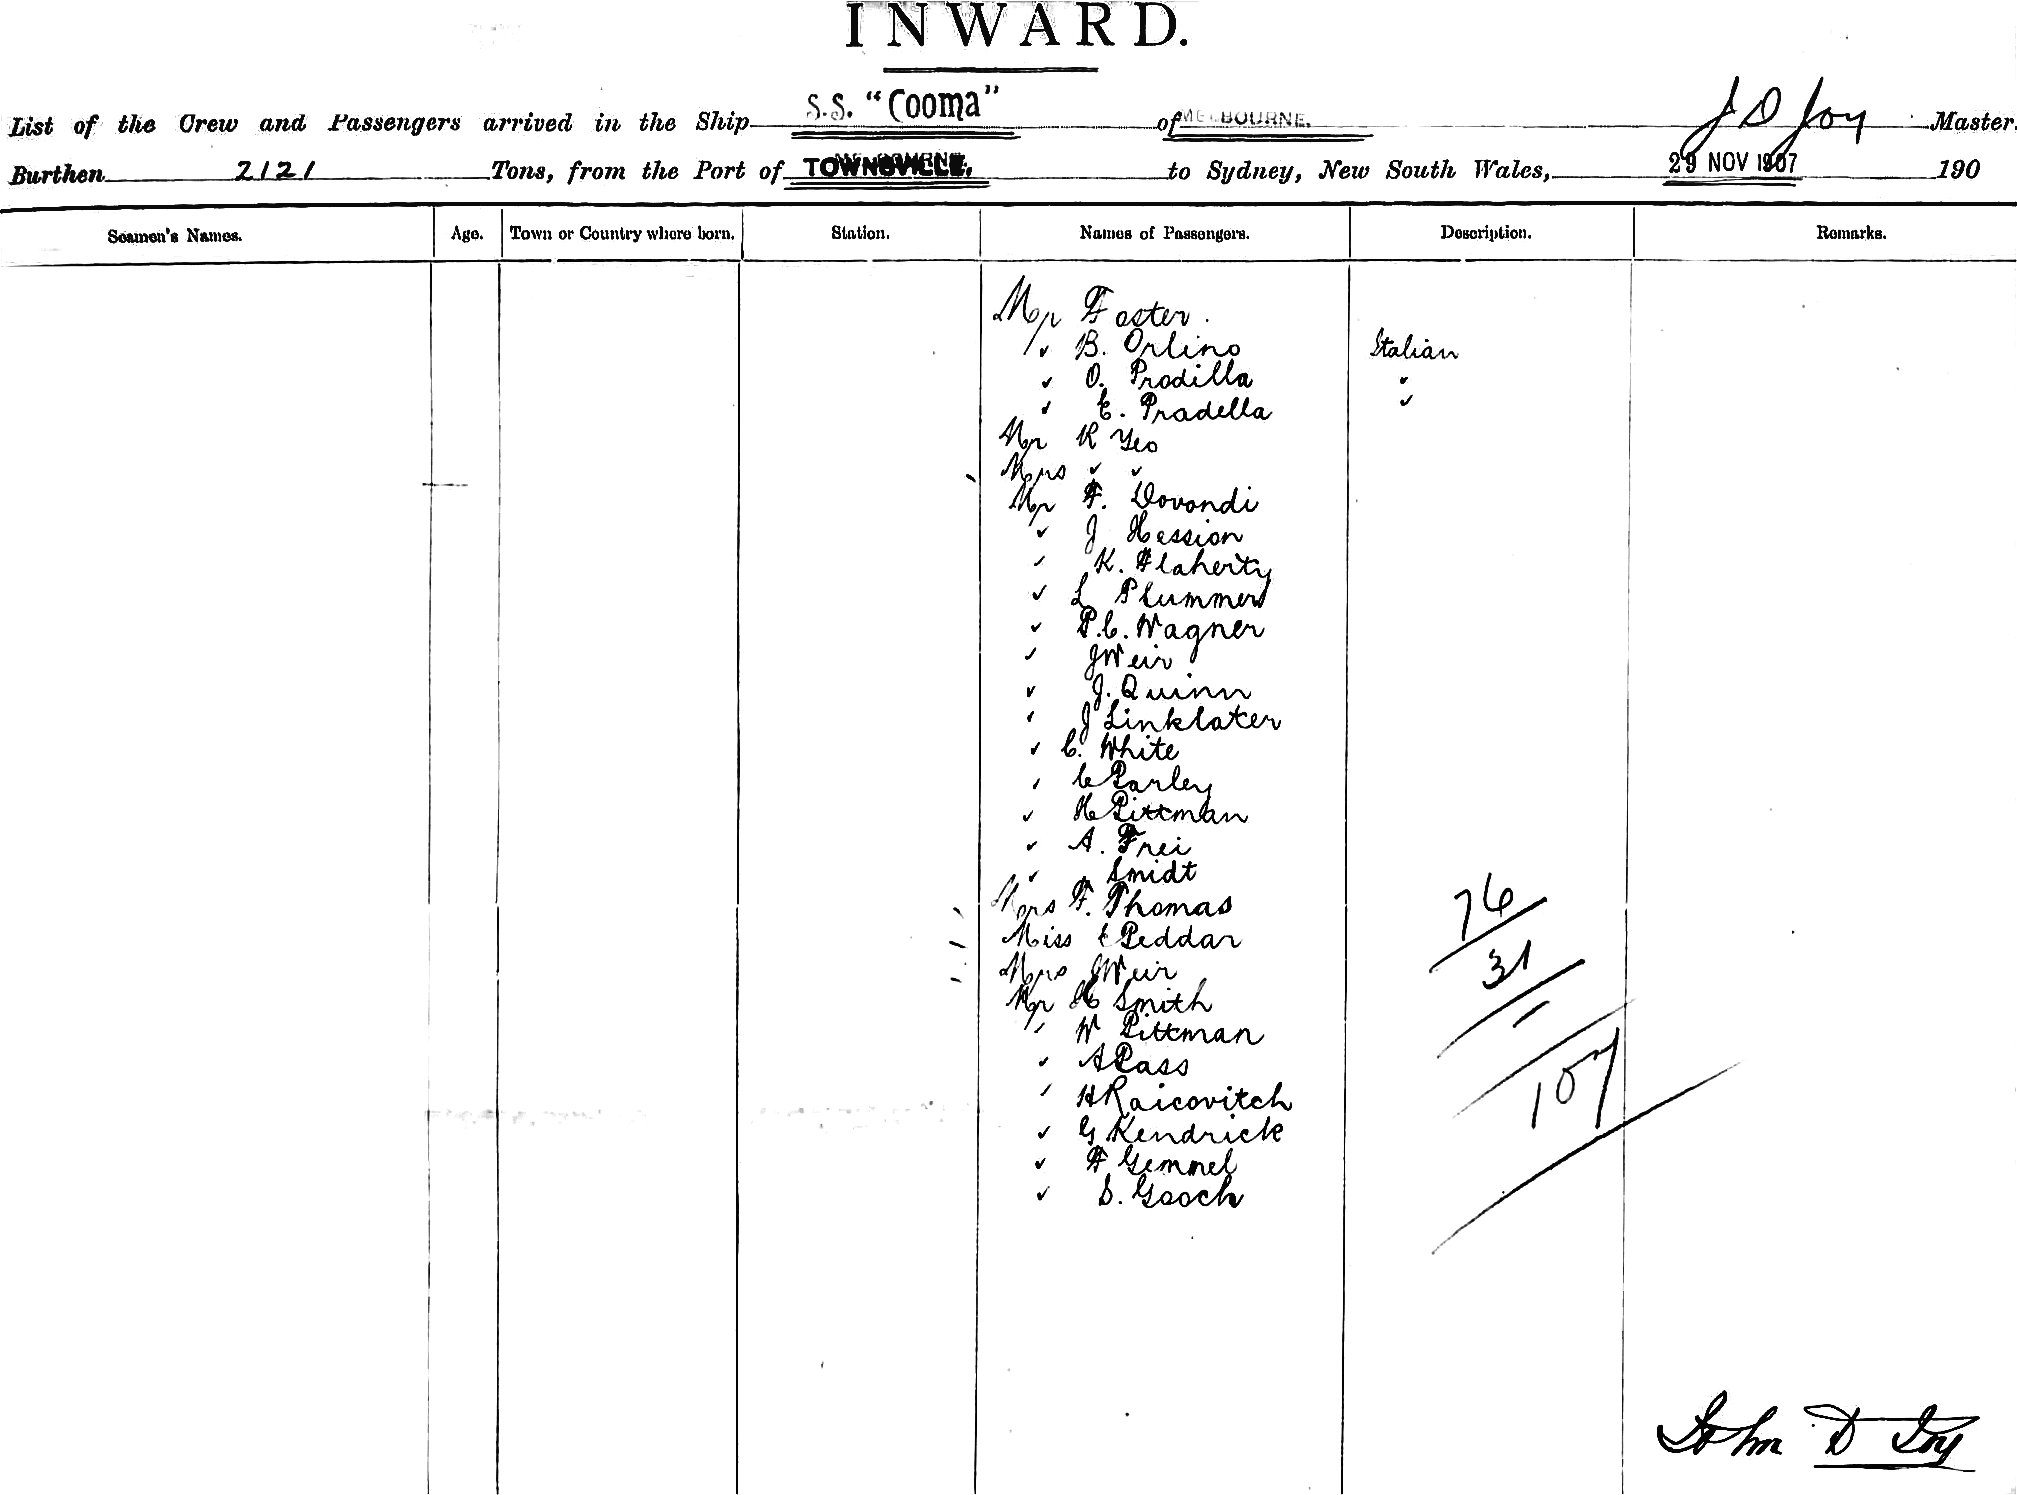 INWARD.
List of the Crew and Passengers arrived in the Ship S.S. "Cooma" of MELBOURNE. J D Joy Master.
Burthen 2121 Tons, from the Port of TOWNSVILLE. to Sydney, New South Wales, 29 NOV 1907 190
Seamen's Names. Age. Town or Country where born. Station. Names of Passengers. Description. Remarks.
Mr Foster.
" B. Orlino Italian
" O. Prodilla "
" E. Pradella "
Mr R Yeo
Mrs " "
Mr F. Dovondi
" J Hession
" K. Flaherty
" L Plummer
" P.C. Wagner
" J Weir
" J. Quinn
" J Linklater
" C. White
" C Parley
" H Pittman
" A. Frei
" Smidt
Mrs F. Thomas
Miss E Peddar
Mrs J Weir
Mr H Smith
" W Pittman
" A Pass
" H Raicovitch
" G Kendrick
" F Gemmel
" S. Gooch
76
31
107
John D Joy